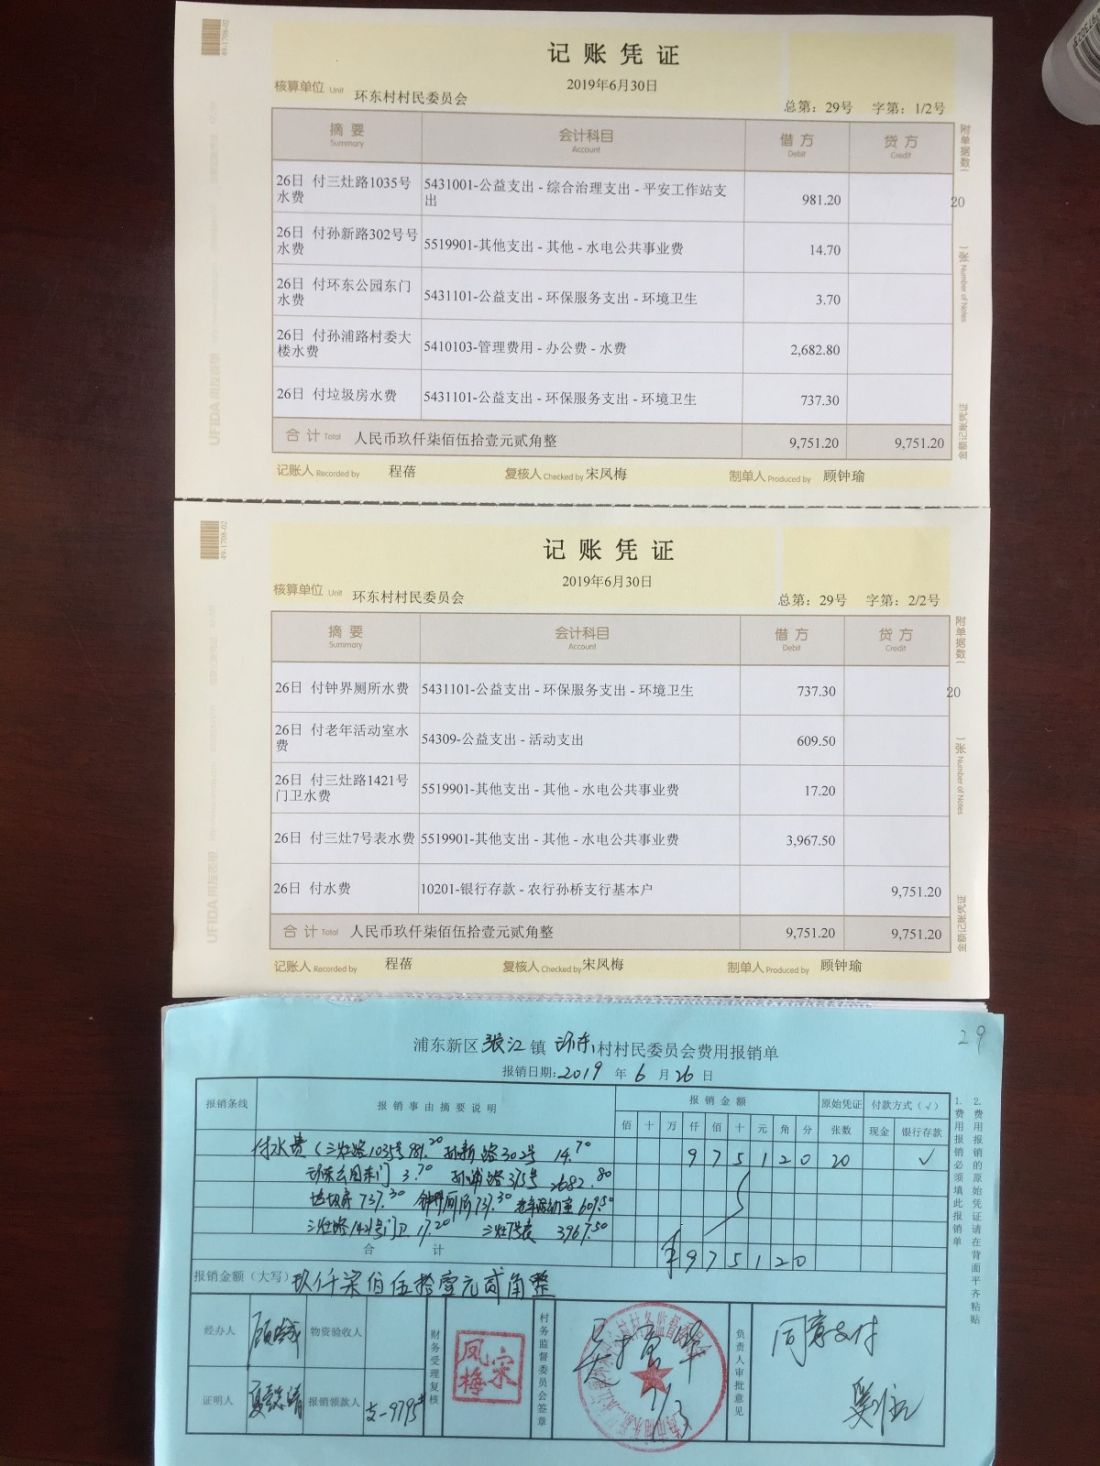 49-1708-02
记账凭证
2019年6月30日
核算单位 Unit 环东村村民委员会
总第：29号 字第：1/2号
摘要 会计科目 借方 贷方
Summary Account Debit Credit
附单据数
20
26日 付三灶路1035号
水费
5431001-公益支出 - 综合治理支出 - 平安工作站支
出
981.20
26日 付孙新路302号号
水费
5519901-其他支出 - 其他 - 水电公共事业费
14.70
张
Number of Notes
26日 付环东公园东门
水费
5431101-公益支出 - 环保服务支出 - 环境卫生
3.70
26日 付孙浦路村委大
楼水费
5410103-管理费用 - 办公费 - 水费
2,682.80
26日 付垃圾房水费
5431101-公益支出 - 环保服务支出 - 环境卫生
737.30
合计 Total 人民币玖仟柒佰伍拾壹元贰角整 9,751.20 9,751.20
金额记账凭证
记账人 Recorded by 程蓓 复核人 Checked by 宋凤梅 制单人 Produced by 顾钟瑜
49-1708-02
记账凭证
2019年6月30日
核算单位 Unit 环东村村民委员会
总第：29号 字第：2/2号
摘要 会计科目 借方 贷方
Summary Account Debit Credit
附单据数
20
26日 付钟界厕所水费
5431101-公益支出 - 环保服务支出 - 环境卫生
737.30
26日 付老年活动室水
费
54309-公益支出 - 活动支出
609.50
张
Number of Notes
26日 付三灶路1421号
门卫水费
5519901-其他支出 - 其他 - 水电公共事业费
17.20
26日 付三灶7号表水费
5519901-其他支出 - 其他 - 水电公共事业费
3,967.50
26日 付水费
10201-银行存款 - 农行孙桥支行基本户
9,751.20
合计 Total 人民币玖仟柒佰伍拾壹元贰角整 9,751.20 9,751.20
金额记账凭证
记账人 Recorded by 程蓓 复核人 Checked by 宋凤梅 制单人 Produced by 顾钟瑜
UFIDA
UFIDA
29
浦东新区 张江 镇 环东 村村民委员会费用报销单
报销日期：2019 年 6 月 26 日
报销条线 报销事由摘要说明 报销金额 原始凭证 付款方式（√）
佰 十 万 仟 佰 十 元 角 分 张数 现金 银行存款
付水费（三灶路1035号 981.20 孙新路302号 14.70
9 7 5 1 2 0 20 √
环东公园东门 3.70 孙浦路315号 2682.80
垃圾房 737.30 钟界厕所 737.30 老年活动室 609.50
三灶路1421号门卫 17.20 三灶7号表 3967.50
合计 ¥ 9 7 5 1 2 0
报销金额（大写） 玖仟柒佰伍拾壹元贰角整
1. 费用报销必须填此报销单
2. 费用报销的原始凭证请在背面平齐粘贴
经办人
物资验收人
证明人
报销领款人
支-9795#
财务受理复核
宋凤梅
村务监督委员会签章
7/3
负责人审批意见
同意支付